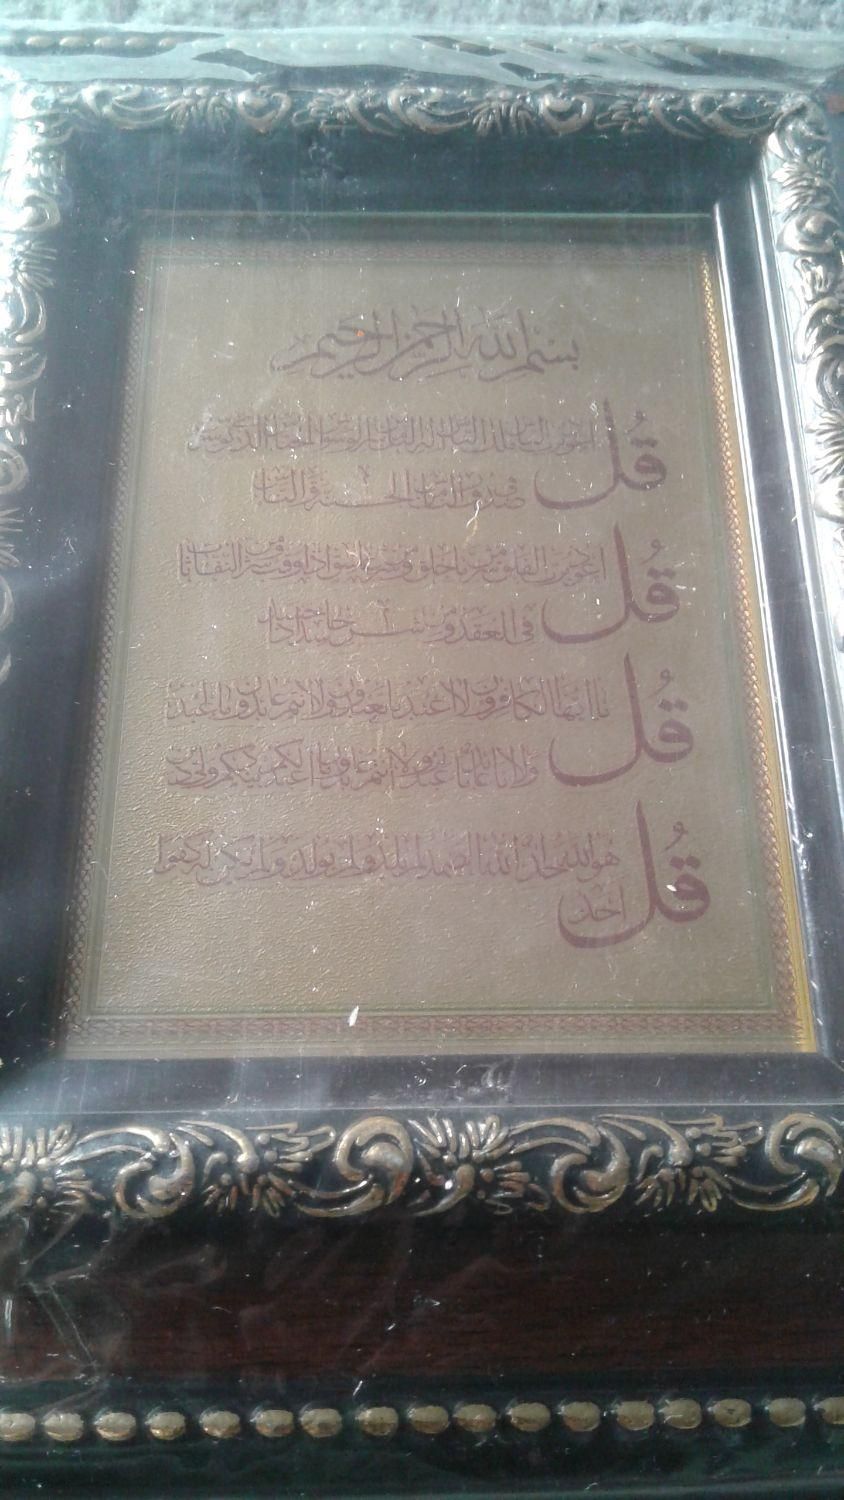 بسم الله الرحمن الرحيم
قل اعوذ برب الناس ملك الناس اله الناس من شر الوسواس الخناس الذي يوسوس
في صدور الناس من الجنة والناس
قل اعوذ برب الفلق من شر ما خلق ومن شر غاسق اذا وقب ومن شر النفاثات
في العقد ومن شر حاسد اذا حسد
قل يا ايها الكافرون لا اعبد ما تعبدون ولا انتم عابدون ما اعبد
ولا انا عابد ما عبدتم ولا انتم عابدون ما اعبد لكم دينكم ولي دين
قل هو الله احد الله الصمد لم يلد ولم يولد ولم يكن له كفوا
احد